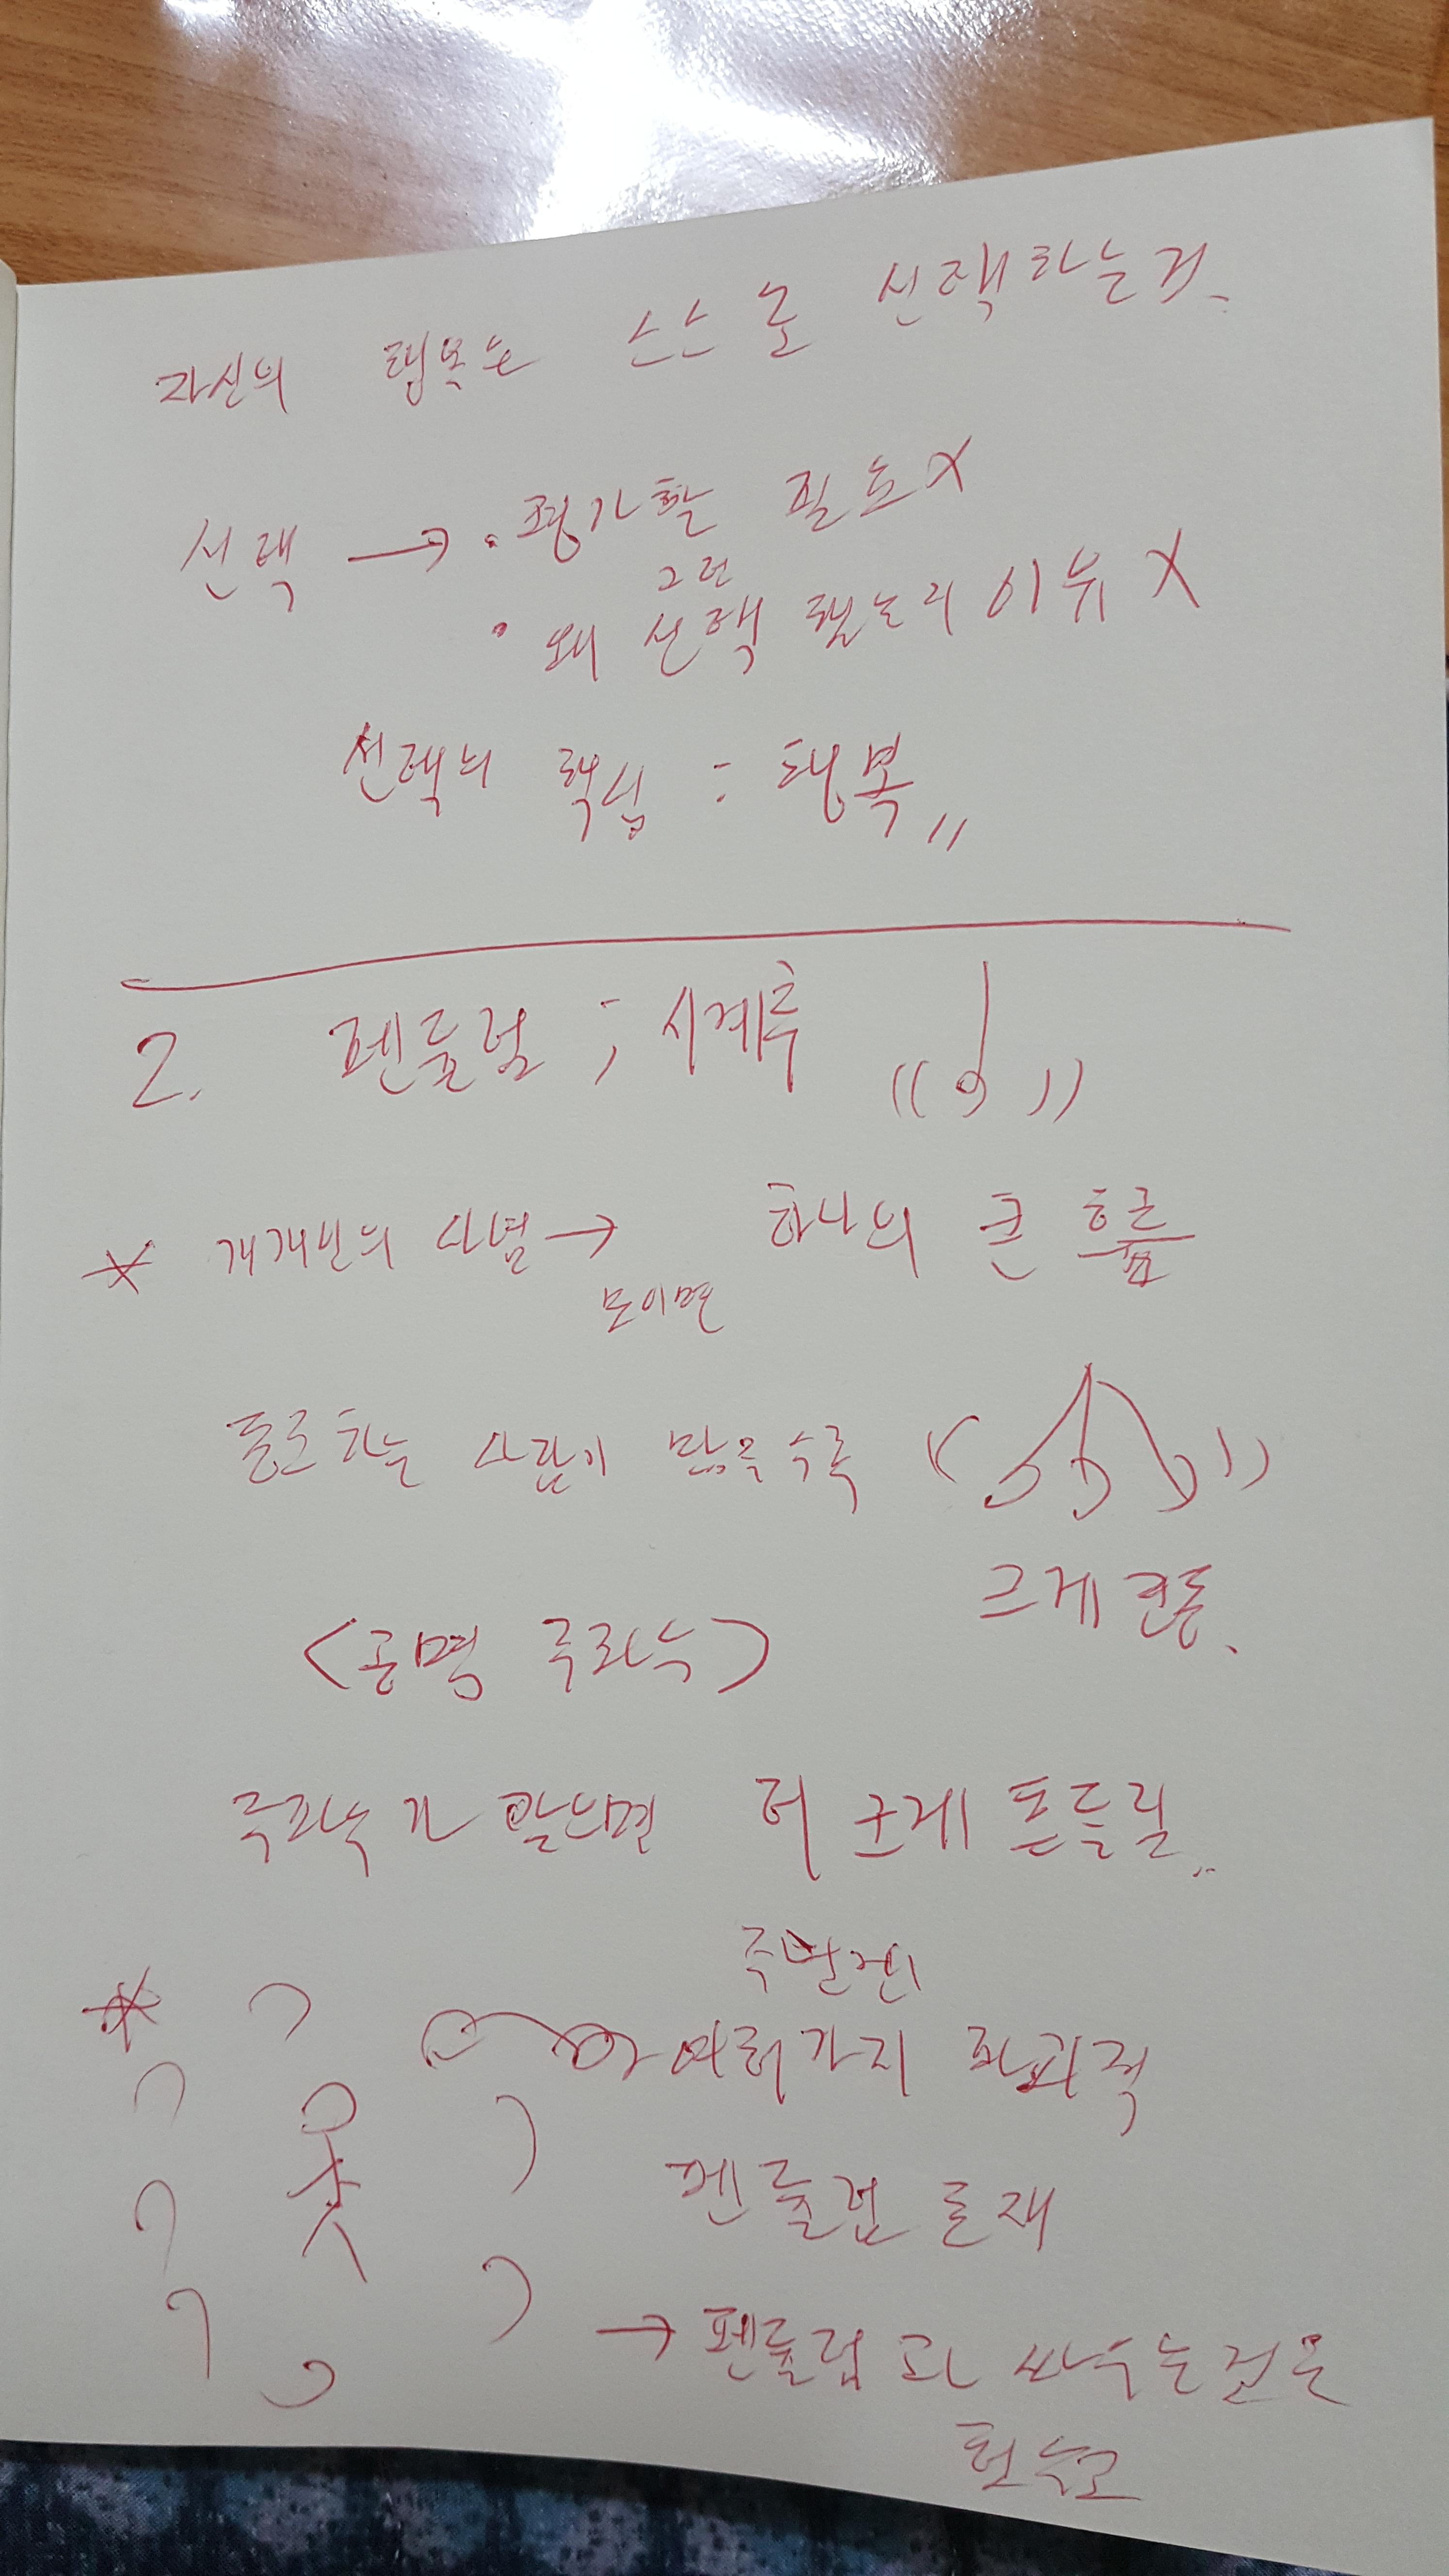 자신의 행복은 스스로 선택하는거.
선택 → · 평가할 필요 X
그런
· 왜 선택 했는지 이유 X
선택의 핵심 : 행복 〃
2. 펜듈럼 ; 시계추
* 개개인의 사념 → 하나의 큰 흐름
모이면
동조하는 사람이 많을수록
크게 진동.
<공명 주파수>
주파수가 맞으면 더 크게 흔들림..
주변엔
* 여러가지 파괴적
펜듈럼 존재
→ 펜듈럼과 싸우는것은
헛수고